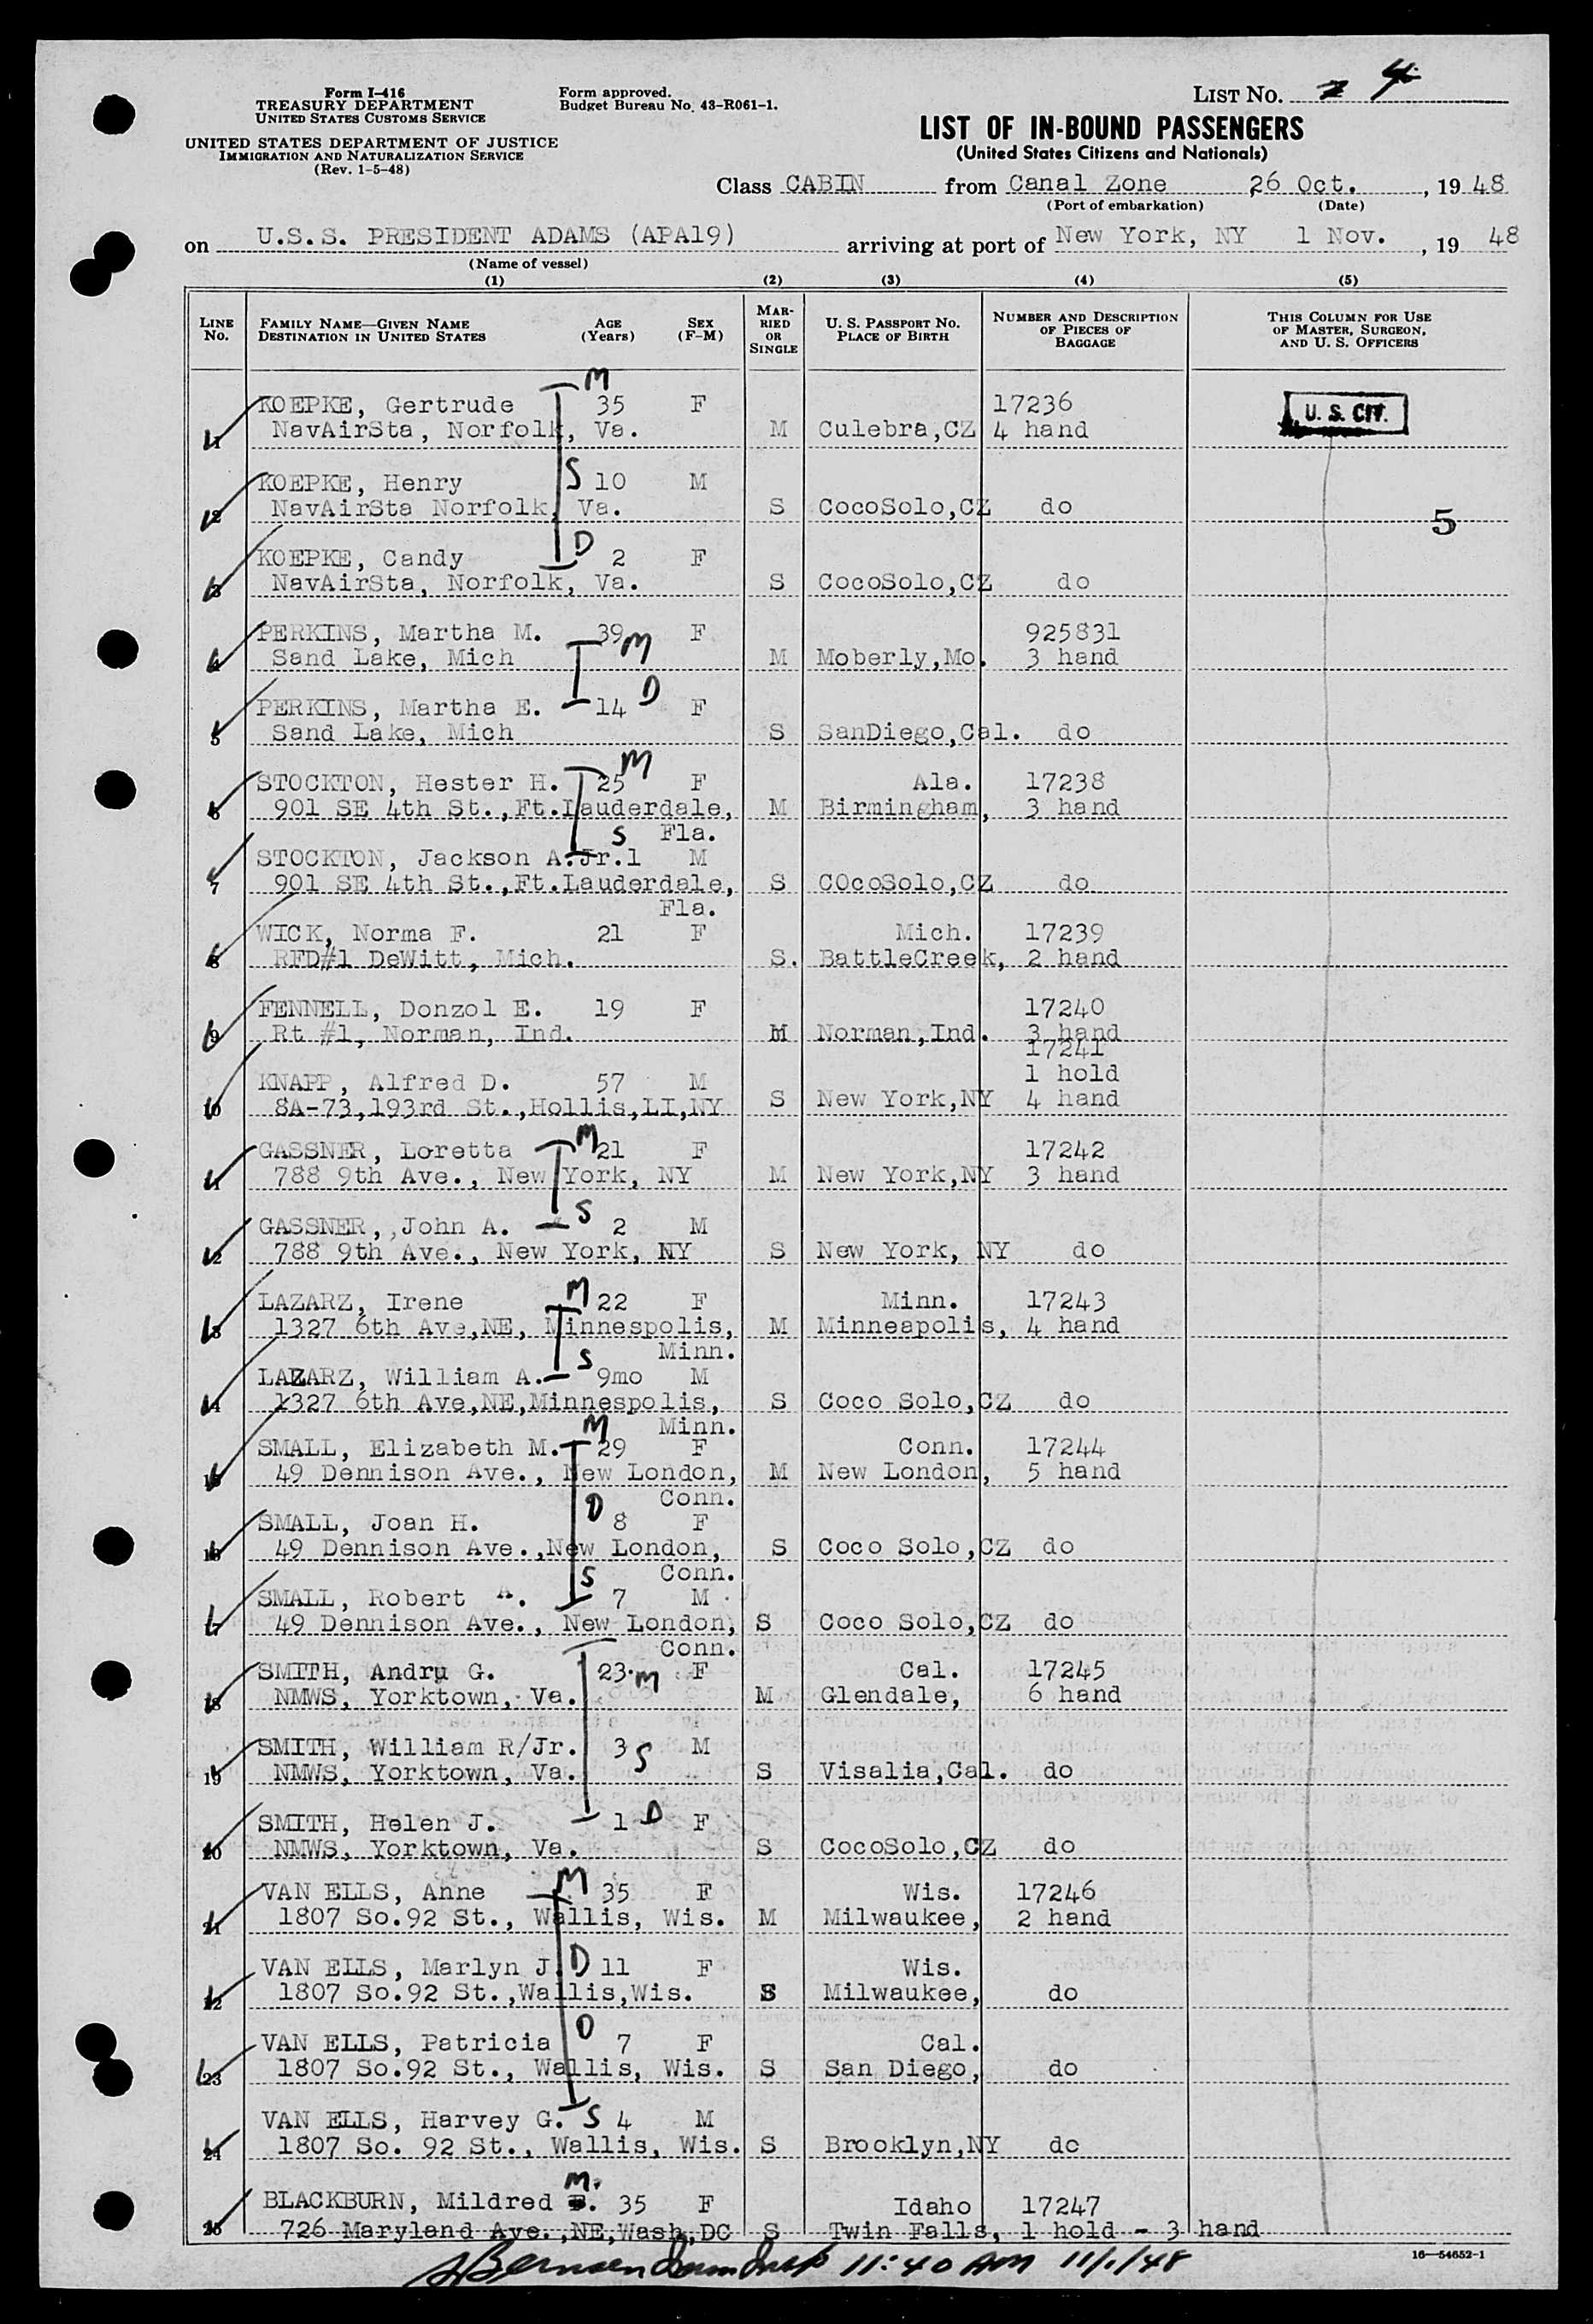 Form I-416
TREASURY DEPARTMENT
UNITED STATES CUSTOMS SERVICE
UNITED STATES DEPARTMENT OF JUSTICE
IMMIGRATION AND NATURALIZATION SERVICE
(Rev. 1-5-48)
Form approved.
Budget Bureau No. 43-R061-1.
LIST No. 2 4
LIST OF IN-BOUND PASSENGERS
(United States Citizens and Nationals)
Class CABIN from Canal Zone 26 Oct. , 19 48
(Port of embarkation) (Date)
on U.S.S. PRESIDENT ADAMS (APA19) arriving at port of New York, NY 1 Nov. , 19 48
(Name of vessel)
(1) (2) (3) (4) (5)
LINE No. FAMILY NAME—GIVEN NAME DESTINATION IN UNITED STATES AGE (Years) SEX (F-M) MARRIED OR SINGLE U. S. PASSPORT No. PLACE OF BIRTH NUMBER AND DESCRIPTION OF PIECES OF BAGGAGE THIS COLUMN FOR USE OF MASTER, SURGEON, AND U. S. OFFICERS
M
KOEPKE, Gertrude 35 F 17236 U. S. CIT.
1 NavAirSta, Norfolk, Va. M Culebra,CZ 4 hand
KOEPKE, Henry S 10 M
2 NavAirSta Norfolk, Va. S CocoSolo,CZ do 5
KOEPKE, Candy D 2 F
3 NavAirSta, Norfolk, Va. S CocoSolo,CZ do
PERKINS, Martha M. 39 M F 925831
4 Sand Lake, Mich M Moberly,Mo. 3 hand
PERKINS, Martha E. 14 D F
5 Sand Lake, Mich S SanDiego,Cal. do
STOCKTON, Hester H. 25 M F Ala. 17238
6 901 SE 4th St.,Ft.Lauderdale, M Birmingham, 3 hand
S Fla.
STOCKTON, Jackson A.Jr.1 M
7 901 SE 4th St.,Ft.Lauderdale, S COcoSolo,CZ do
Fla.
WICK, Norma F. 21 F Mich. 17239
8 RFD#1 DeWitt, Mich. S. BattleCreek, 2 hand
FENNELL, Donzol E. 19 F 17240
9 Rt #1, Norman, Ind. M Norman,Ind. 3 hand
17241
1 hold
KNAPP, Alfred D. 57 M
10 8A-73,193rd St.,Hollis,LI,NY S New York,NY 4 hand
GASSNER, Loretta M 21 F 17242
11 788 9th Ave., New York, NY M New York,NY 3 hand
GASSNER,,John A. S 2 M
12 788 9th Ave., New York, NY S New York, NY do
LAZARZ, Irene M 22 F Minn. 17243
13 1327 6th Ave,NE, Minnespolis, M Minneapolis, 4 hand
S Minn.
LAZARZ, William A. 9mo M
14 1327 6th Ave,NE,Minnespolis, S Coco Solo,CZ do
M Minn.
SMALL, Elizabeth M. 29 F Conn. 17244
15 49 Dennison Ave., New London, M New London, 5 hand
Conn.
SMALL, Joan H. D 8 F
16 49 Dennison Ave.,New London, S Coco Solo,CZ do
S Conn.
SMALL, Robert A. 7 M
17 49 Dennison Ave., New London, S Coco Solo,CZ do
Conn.
SMITH, Andry G. 23 M F Cal. 17245
18 NMWS, Yorktown, Va. M Glendale, 6 hand
SMITH, William R/Jr. 3 S M
19 NMWS, Yorktown, Va. S Visalia,Cal. do
SMITH, Helen J. 1 D F
20 NMWS, Yorktown, Va. S CocoSolo,CZ do
VAN ELLS, Anne M 35 F Wis. 17246
21 1807 So.92 St., Wallis, Wis. M Milwaukee, 2 hand
VAN ELLS, Marlyn J. D 11 F Wis.
22 1807 So.92 St.,Wallis,Wis. S Milwaukee, do
VAN ELLS, Patricia D 7 F Cal.
23 1807 So.92 St., Wallis, Wis. S San Diego, do
VAN ELLS, Harvey G. S 4 M
24 1807 So. 92 St., Wallis, Wis. S Brooklyn,NY do
M.
BLACKBURN, Mildred 35 F Idaho 17247
25 726 Maryland Ave.,NE,Wash,DC S Twin Falls, 1 hold - 3 hand
11:40 AM 11/1/48
16—54652-1